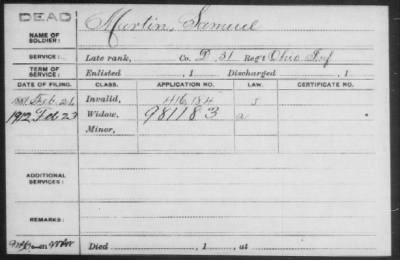 DEAD
Martin, Samuel
NAME OF SOLDIER:
SERVICE: Late rank, Co. D 31 Reg't Ohio Inf
TERM OF SERVICE: Enlisted , 1 Discharged , 1
DATE OF FILING. CLASS. APPLICATION NO. LAW. CERTIFICATE NO.
Feb. 21 Invalid, 416184
1912 Feb 23 Widow, 981183 a
Minor,
ADDITIONAL SERVICES:
REMARKS:
Died , 1 , at